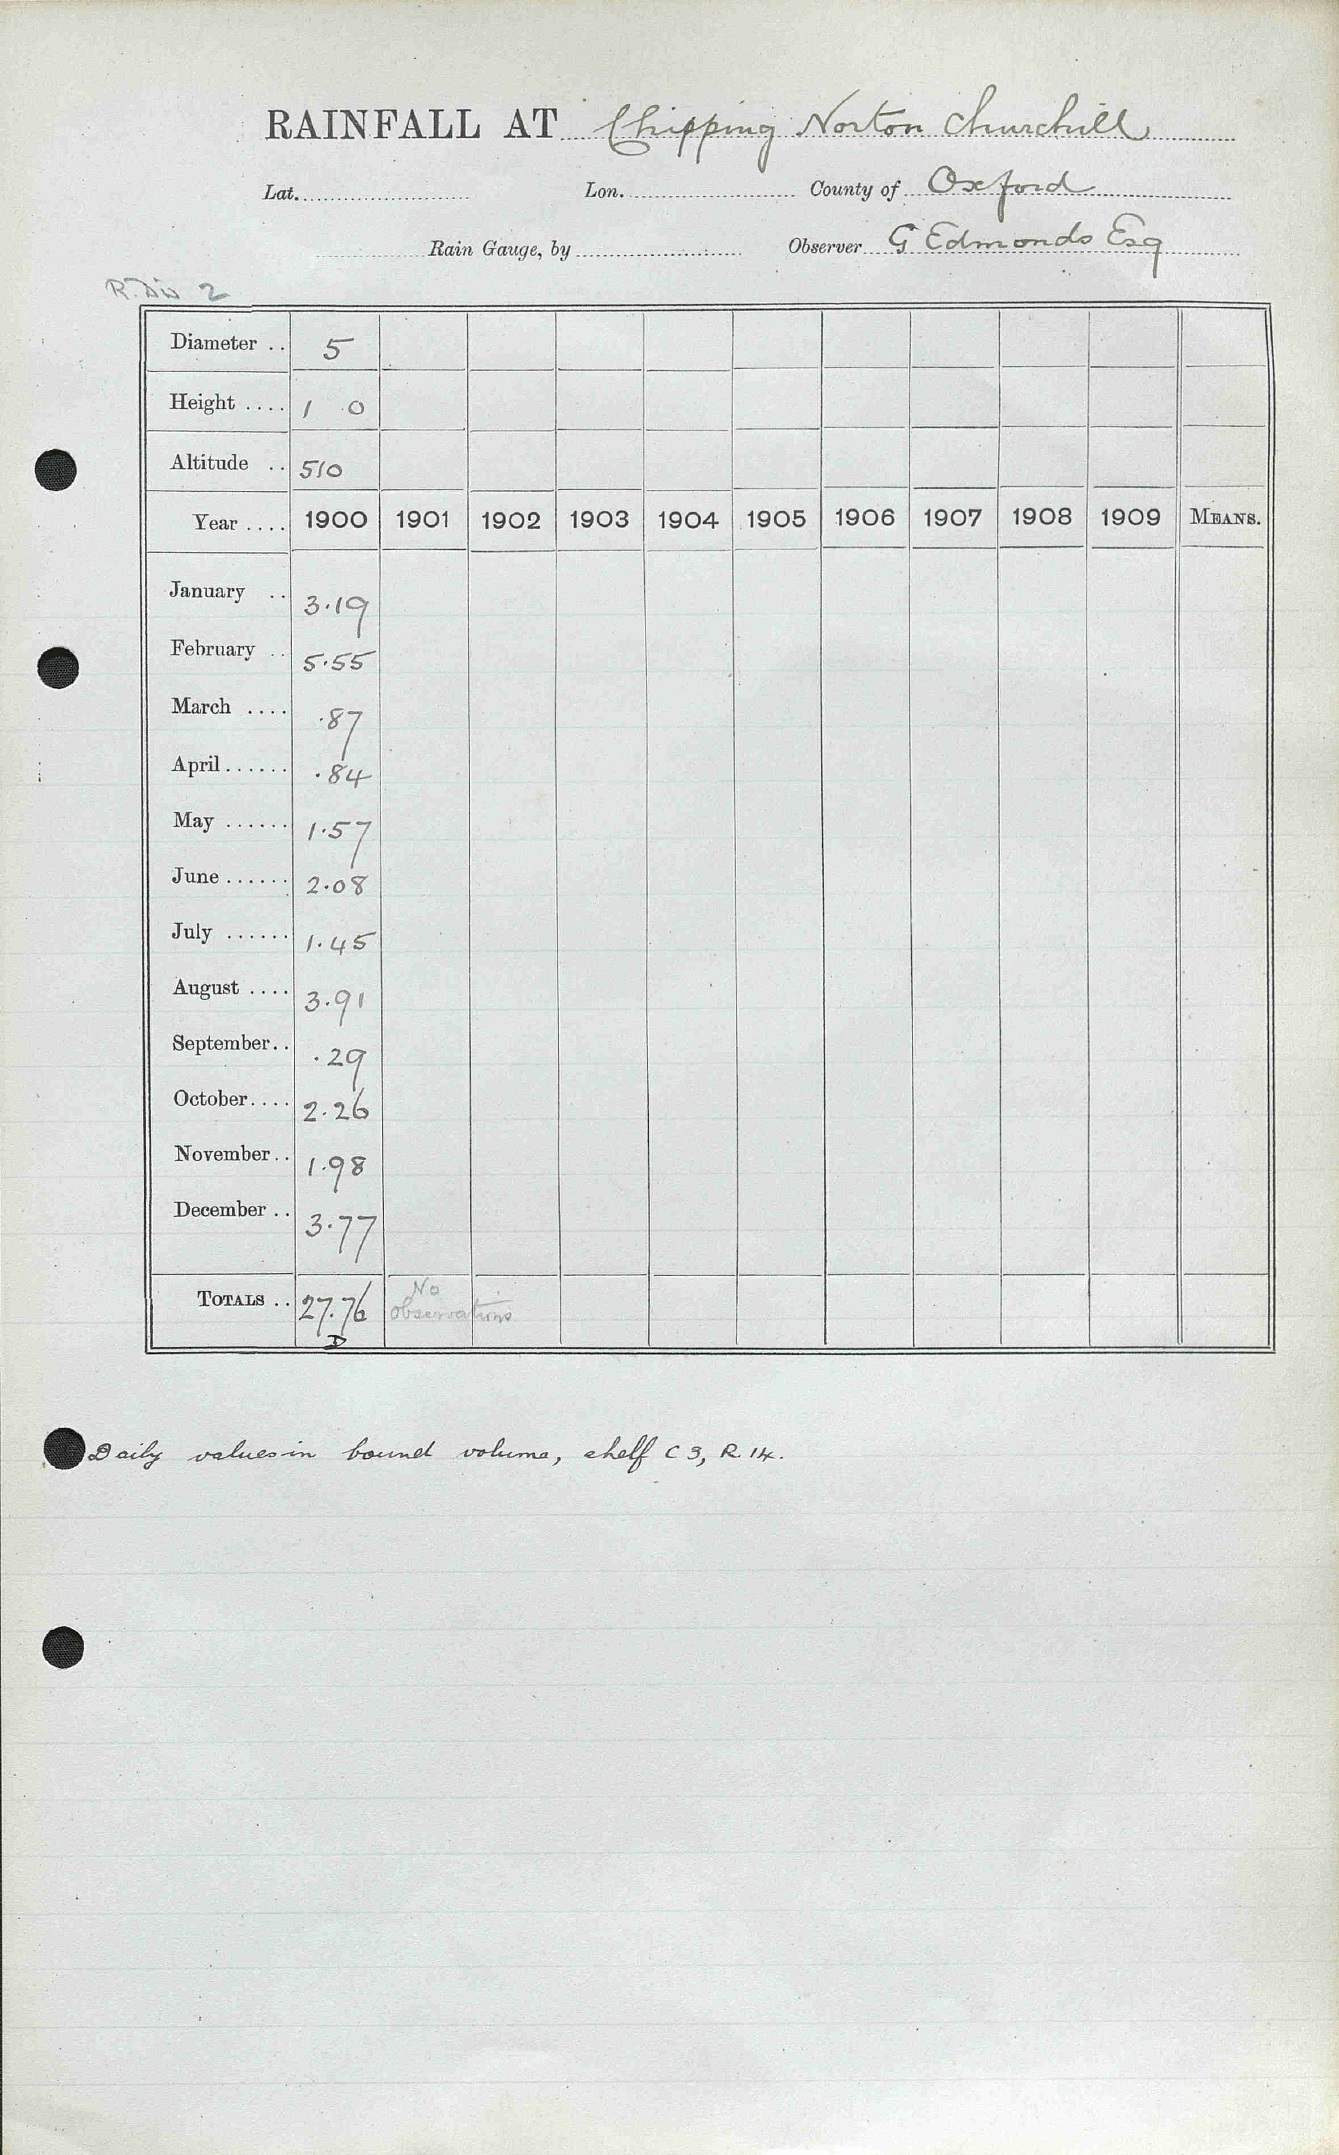 RAINFALL AT Chipping Norton Churchill
Lat. Lon. County of Oxford
Rain Gauge, by Observer G Edmonds Esq
R. Div 2
Diameter .. 5
Height .... 1 0
Altitude .. 510
Year .... 1900 1901 1902 1903 1904 1905 1906 1907 1908 1909 MEANS.
January .. 3.19
February .. 5.55
March .... .87
April ...... .84
May ...... 1.57
June ...... 2.08
July ...... 1.45
August .... 3.91
September.. .29
October.... 2.26
November.. 1.98
December .. 3.77
TOTALS .. 27.76 No observations
D
Daily values in bound volume, shelf C 3, R. 14.